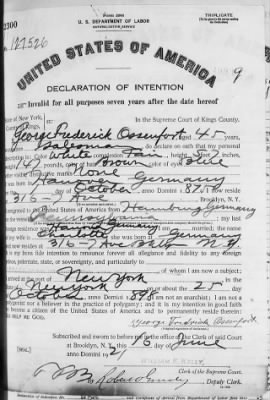 2300
Form 2203
TRIPLICATE
U. S. DEPARTMENT OF LABOR
NATURALIZATION SERVICE
No. 127526
UNITED STATES OF AMERICA
9
DECLARATION OF INTENTION
Invalid for all purposes seven years after the date hereof
State of New York,
In the Supreme Court of Kings County.
County of Kings,
George Frederick Ossenfort, aged 45 years,
occupation Salesman, do declare on oath that my personal
description is: Color White, complexion Fair, height feet inches,
weight 147 pounds, color of hair Brown, color of eyes Blue
marks None
Germany
October, anno Domini 187; I now reside
at 316 - 7 Ave, Brooklyn, N. Y.
emigrated to the United States of America from Hamburg Germany
on the vessel Pennsylvania; my last
foreign residence was Hamburg Germany; I am married; the name
Charlotte; she was born at Germany
now resides at 316-7 Ave Bklyn N Y.
It is my bona fide intention to renounce forever all allegiance and fidelity to any foreign
prince, potentate, state, or sovereignty, and particularly to
of whom I am now a subject;
arrived at the port of New York, in the
State of New York, on or about the 25 day
of October, anno Domini 1898; I am not an anarchist; I am not a
polygamist nor a believer in the practice of polygamy; and it is my intention in good faith
to become a citizen of the United States of America and to permanently reside therein:
SO HELP ME GOD.
George Frederick Ossenfort
Subscribed and sworn to before me in the office of the Clerk of said Court
[SEAL] at Brooklyn, N. Y., this 16 day of June
anno Domini 1921
WILLIAM E. KELLY
Clerk of the Supreme Court.
By, Deputy Clerk.